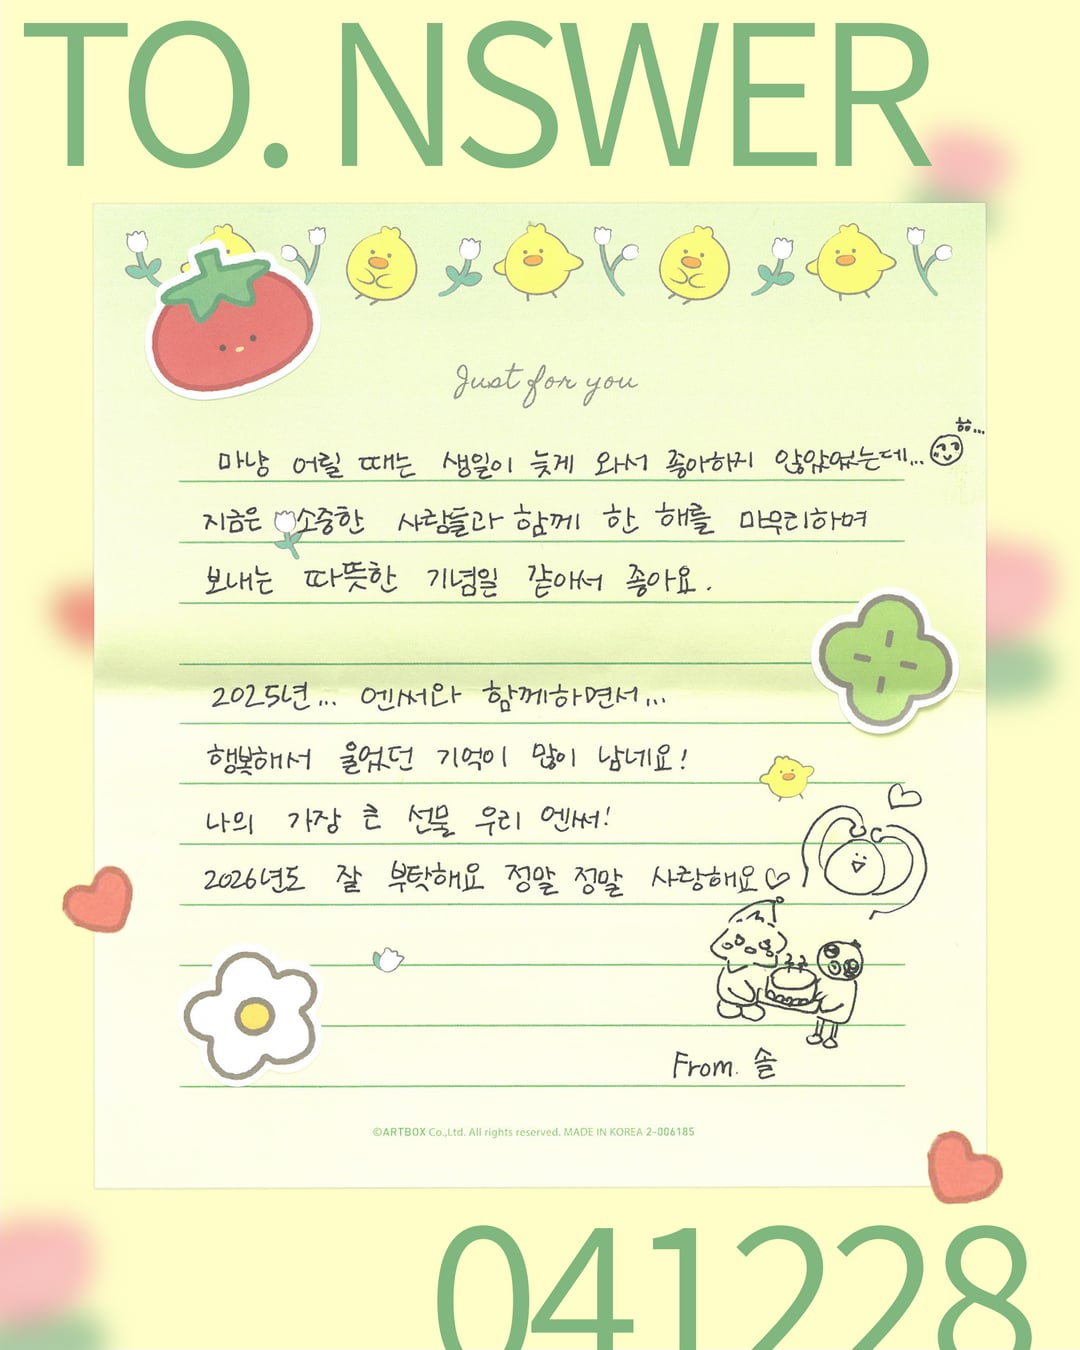 TO. NSWER
Just for you
흠...
마냥 어릴 때는 생일이 늦게 와서 좋아하지 않았었는데...
지금은 소중한 사람들과 함께 한 해를 마무리하며
보내는 따뜻한 기념일 같아서 좋아요.
2025년... 엔써와 함께하면서...
행복해서 울었던 기억이 많이 남네요!
나의 가장 큰 선물 우리 엔써!
2026년도 잘 부탁해요 정말 정말 사랑해요♡
From. 솔
©ARTBOX Co.,Ltd. All rights reserved. MADE IN KOREA 2-006185
041228